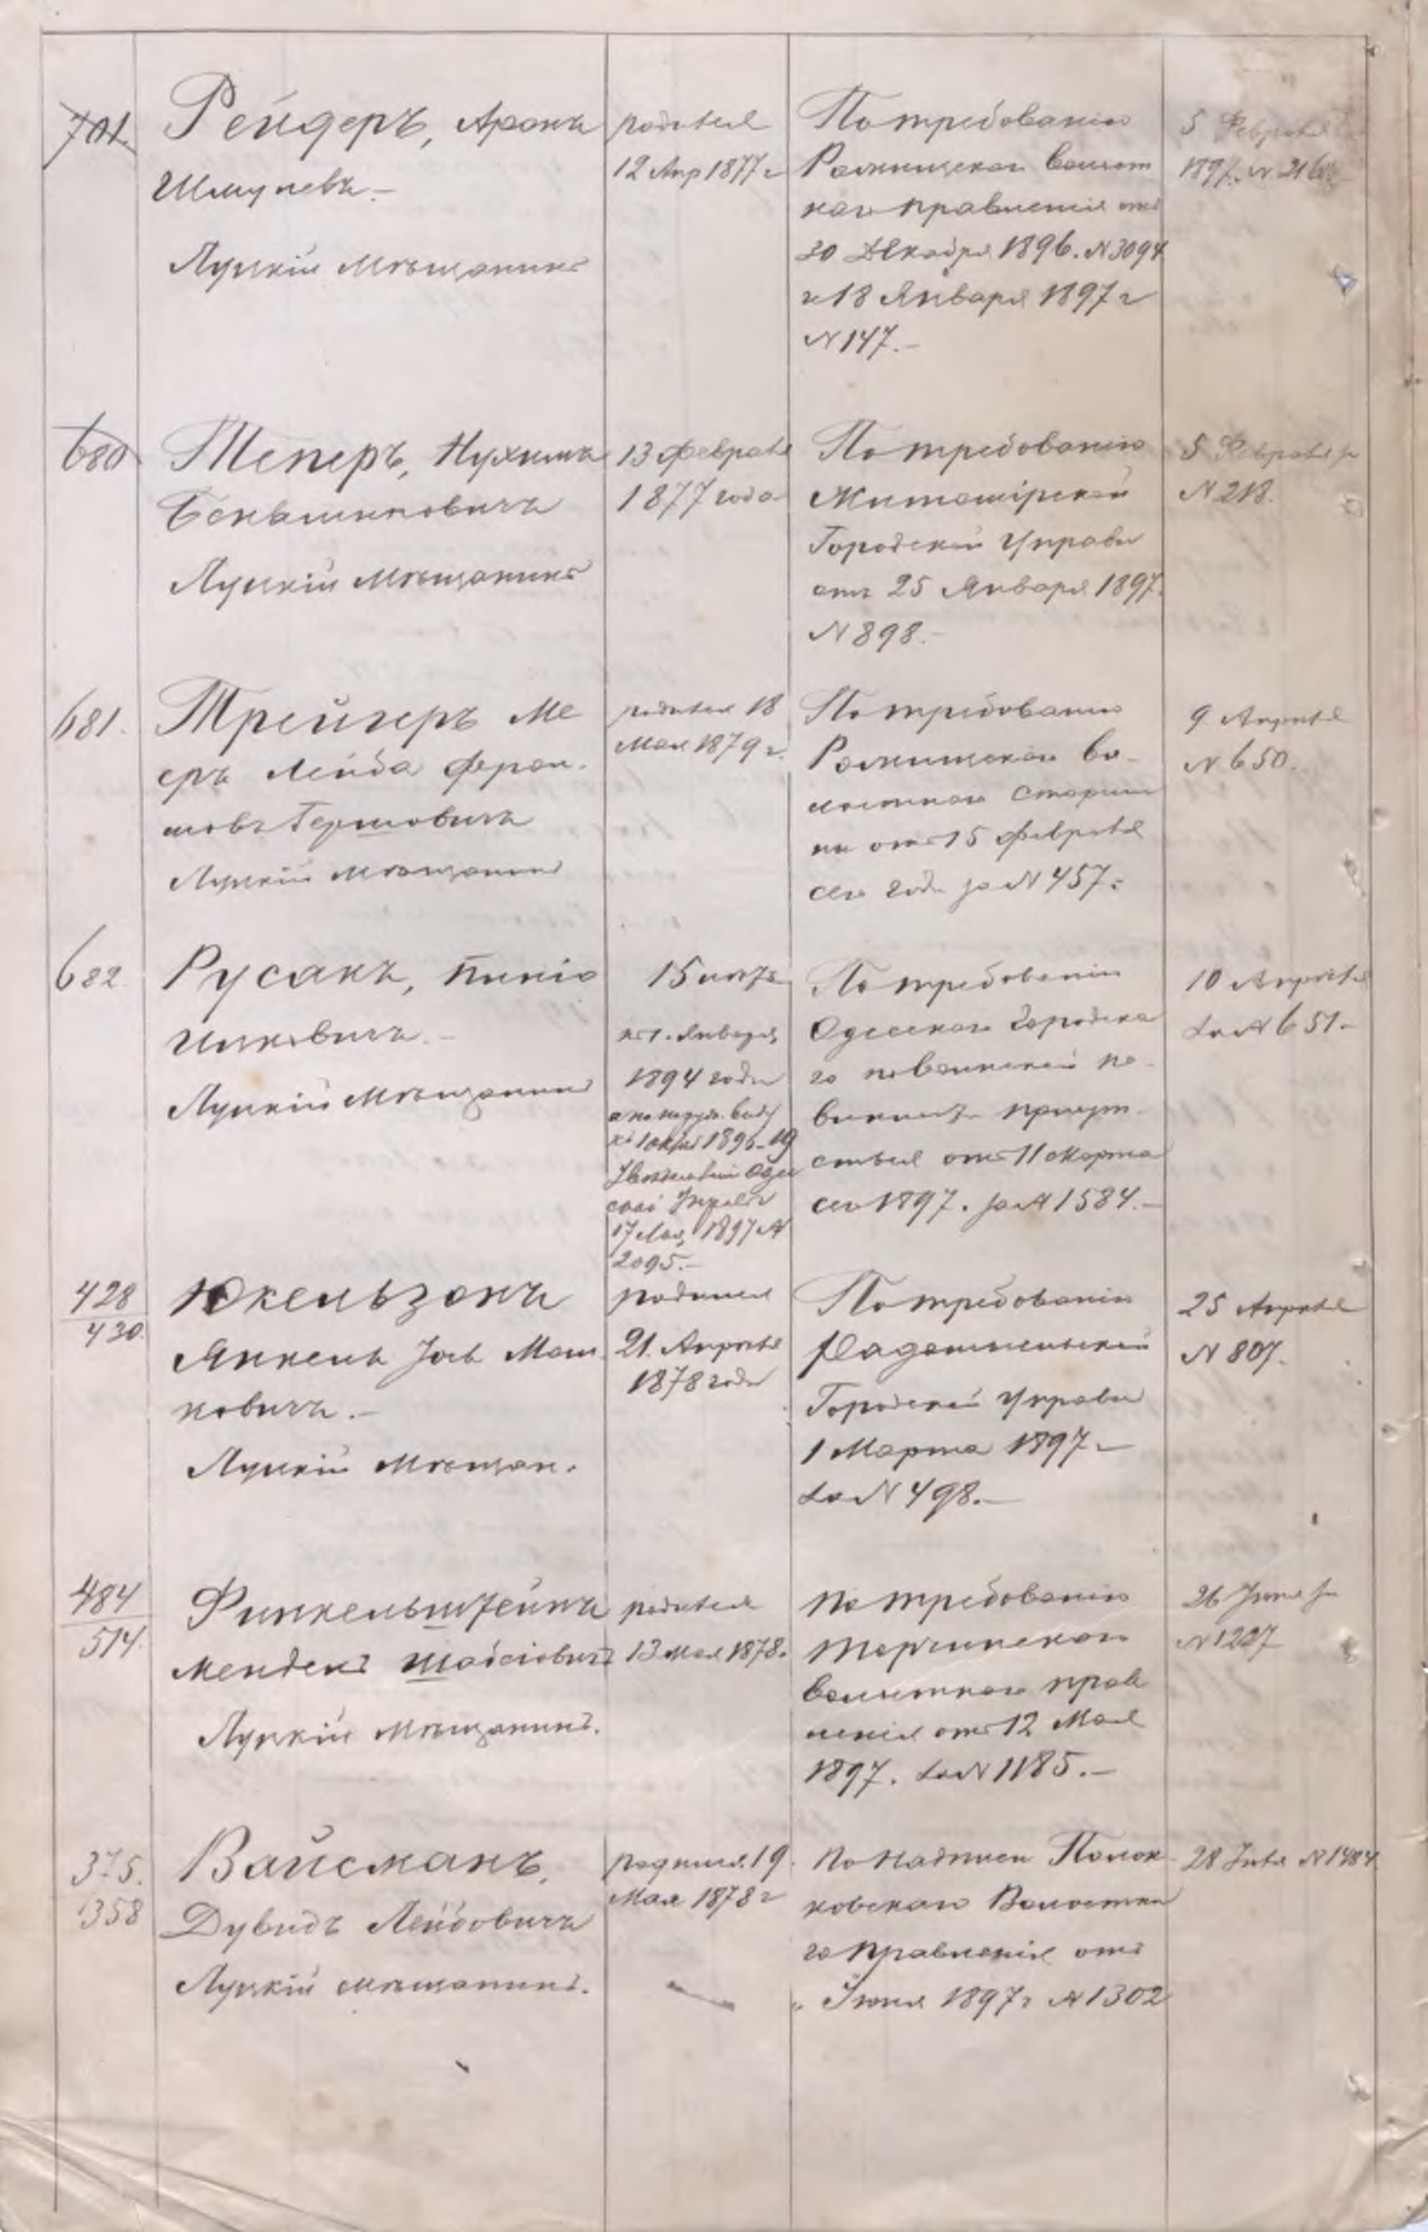 701.
Рейдеръ, Аронъ
Шмулевъ.-
Луцкій мѣщанинъ
родился
12 Апр 1877 г
По требованію
Рожищскаго волост
наго правленія отъ
30 Декабря 1896. N 3094
и 18 Января 1897 г
N 147.-
5 Февраля
1897. N 216
680
Теперъ, Нухимъ
Беньяминовичъ
Луцкій мѣщанинъ
13 Февраля
1877 года
По требованію
Житомірской
Городской Управы
отъ 25 Января 1897.
N 898.-
5 Февраля за
N 218.
681.
Трейгеръ Ме
еръ Лейба
Гершовичъ
Луцкій мѣщанинъ
родился 18
Мая 1879 г.
По требованію
Рожищскаго во-
лостного Старши
ны отъ 15 Февраля
сего года за N 457.-
9 Апрѣля
N 650.
682.
Русакъ, Пинхо
Ицковичъ.-
Луцкій мѣщанинъ
15 лѣтъ
къ 1. Января
1894 года
1897 N
2095.-
По требованію
Одесскаго Городска
го по воинской по-
винности присут-
ствія отъ 11 Марта
сего 1897. за N 1584.-
10 Апрѣля
за N 651.-
428
430.
Юкельзонъ
Янкель Іось Мош
ковичъ.-
Луцкій мѣщан.
родился
21. Апрѣля
1878 года
По требованію
Радомысльской
Городской Управы
1 Марта 1897 г
за N 498.-
25 Апрѣля
N 807.
484
514.
Финкельштейнъ
Мендель Шабсіовичъ
Луцкій мѣщанинъ.
родился
13 мая 1878.
По требованію
Торчинскаго
волостного прав
ленія отъ 12 Мая
1897. за N 1185.-
26 Іюня за
N 1227
375.
358
Вайсманъ.
Дувидъ Лейбовичъ
Луцкій мѣщанинъ.
родился 19.
Мая 1878 г
По надписи Полон-
ковскаго Волостна
го Правленія отъ
„ Іюня 1897 г N 1302
28 Іюля N 1484